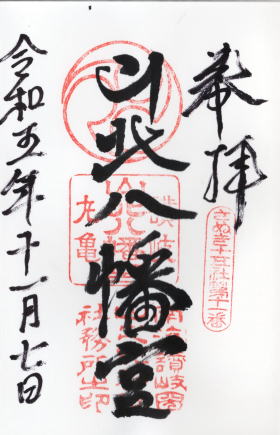 奉拝
さぬき十五社
第十一番
山北八幡宮
讃岐
丸亀
社務所之印
令和五年十一月七日